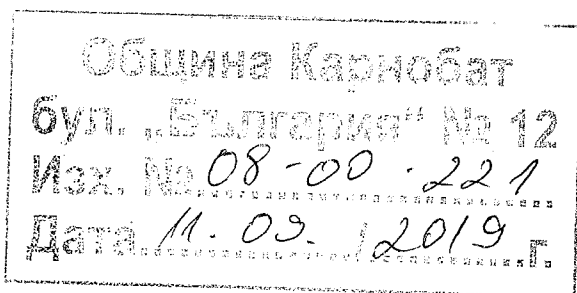 Община Карнобат
бул. „България“ № 12
Изх. № 08-00-221
Дата 11.09./2019 г.